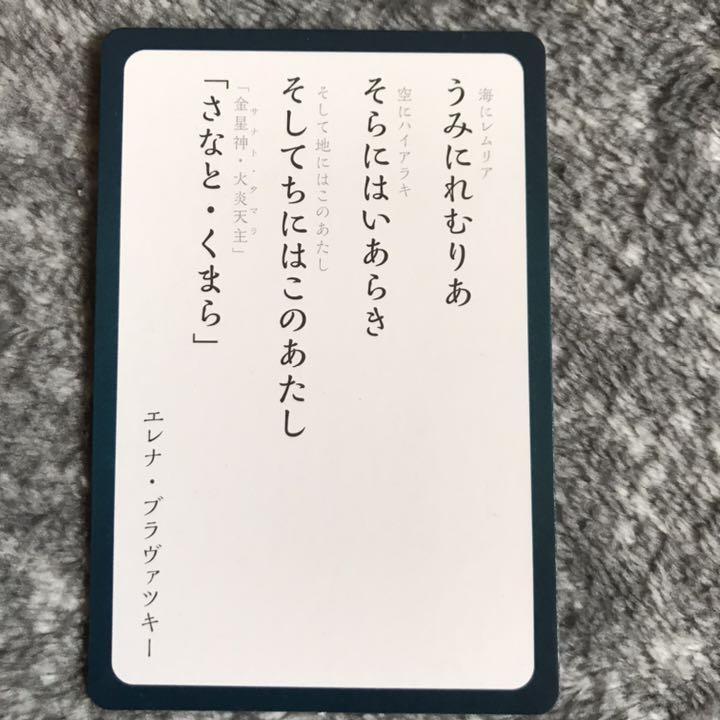 海にレムリア
うみにれむりあ
空にハイアラキ
そらにはいあらき
そして地にはこのあたし
そしてちにはこのあたし
サナト・クマラ
「金星神・火炎天主」
「さなと・くまら」
エレナ・ブラヴァツキー